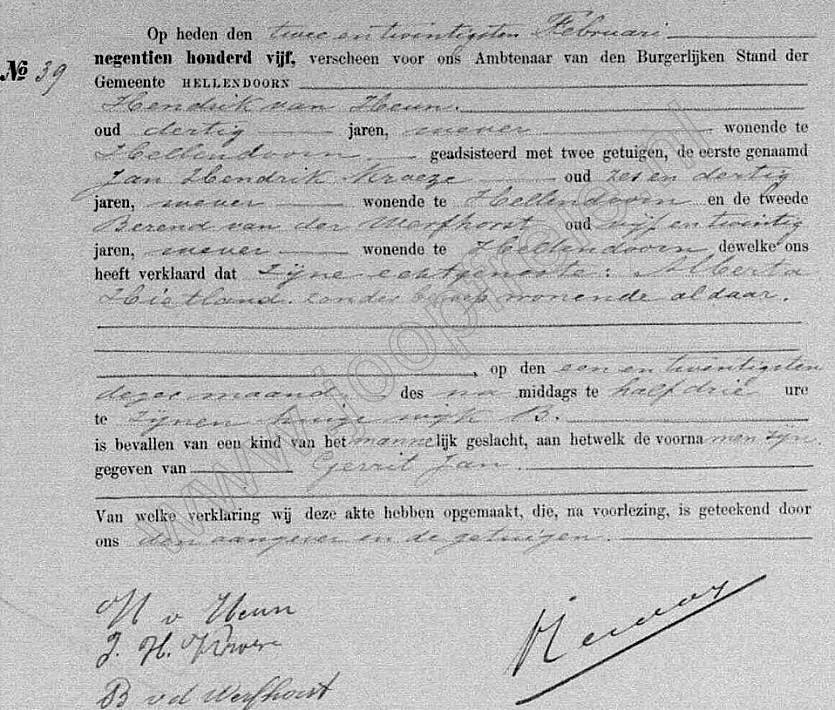 Op heden den twee en twintigsten Februari
№ 39 negentien honderd vijf, verscheen voor ons Ambtenaar van den Burgerlijken Stand der
Gemeente HELLENDOORN
Hendrik van Heun.
oud dertig jaren, wever wonende te
Hellendoorn, geadsisteerd met twee getuigen, de eerste genaamd
Jan Hendrik Kroeze oud zes en dertig
jaren, wever wonende te Hellendoorn en de tweede
Berend van der Werfhorst oud vijf en twintig
jaren, wever wonende te Hellendoorn, dewelke ons
heeft verklaard dat Zijne echtgenoote: Alberta
Hietland. zonder beroep wonende aldaar.
, op den een en twintigsten
dezer maand des na middags te half drie ure
te Zijnen huize wijk B.
is bevallen van een kind van het mannelijk geslacht, aan hetwelk de voornamen zijn
gegeven van Gerrit Jan.
Van welke verklaring wij deze akte hebben opgemaakt, die, na voorlezing, is geteekend door
ons den aangever en de getuigen.
H v Heun
J. H. Kroeze
B v d Werfhorst